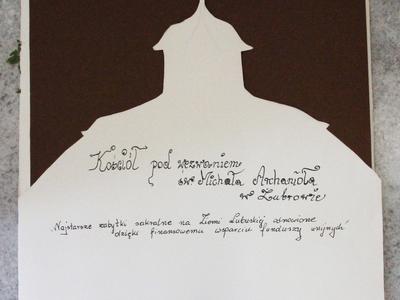 Kościół pod wezwaniem
św Michała Archanioła
w Łubrowie
"Najstarsze zabytki sakralne na Ziemi Lubuskiej odnowione
dzięki finansowemu wsparciu funduszy unijnych"